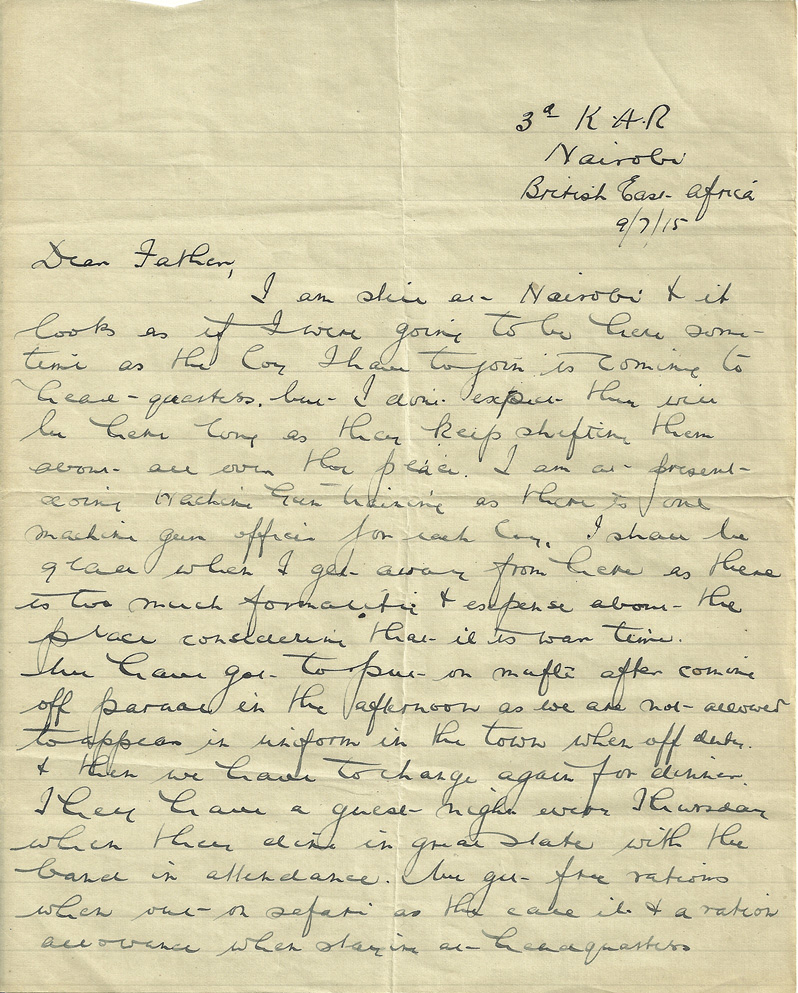 3rd K.A.R
Nairobi
British East Africa
9/7/15
Dear Father,
I am still at Nairobi & it
looks as if I were going to be here some-
time as the Coy I have to join is coming to
head-quarters, but I don't expect they will
be here long as they keep shifting them
about all over the place. I am at present
doing Machine Gun training as there is one
machine gun officer for each Coy. I shall be
glad when I get away from here as there
is too much formality & expense about the
place considering that it is war time.
We have got to put on mufti after coming
off parade in the afternoon as we are not allowed
to appear in uniform in the town when off duty.
& then we have to change again for dinner.
They have a guest night every Thursday
when they dine in great state with the
band in attendance. We get free rations
when out on safari as they call it & a ration
allowance when staying at headquarters